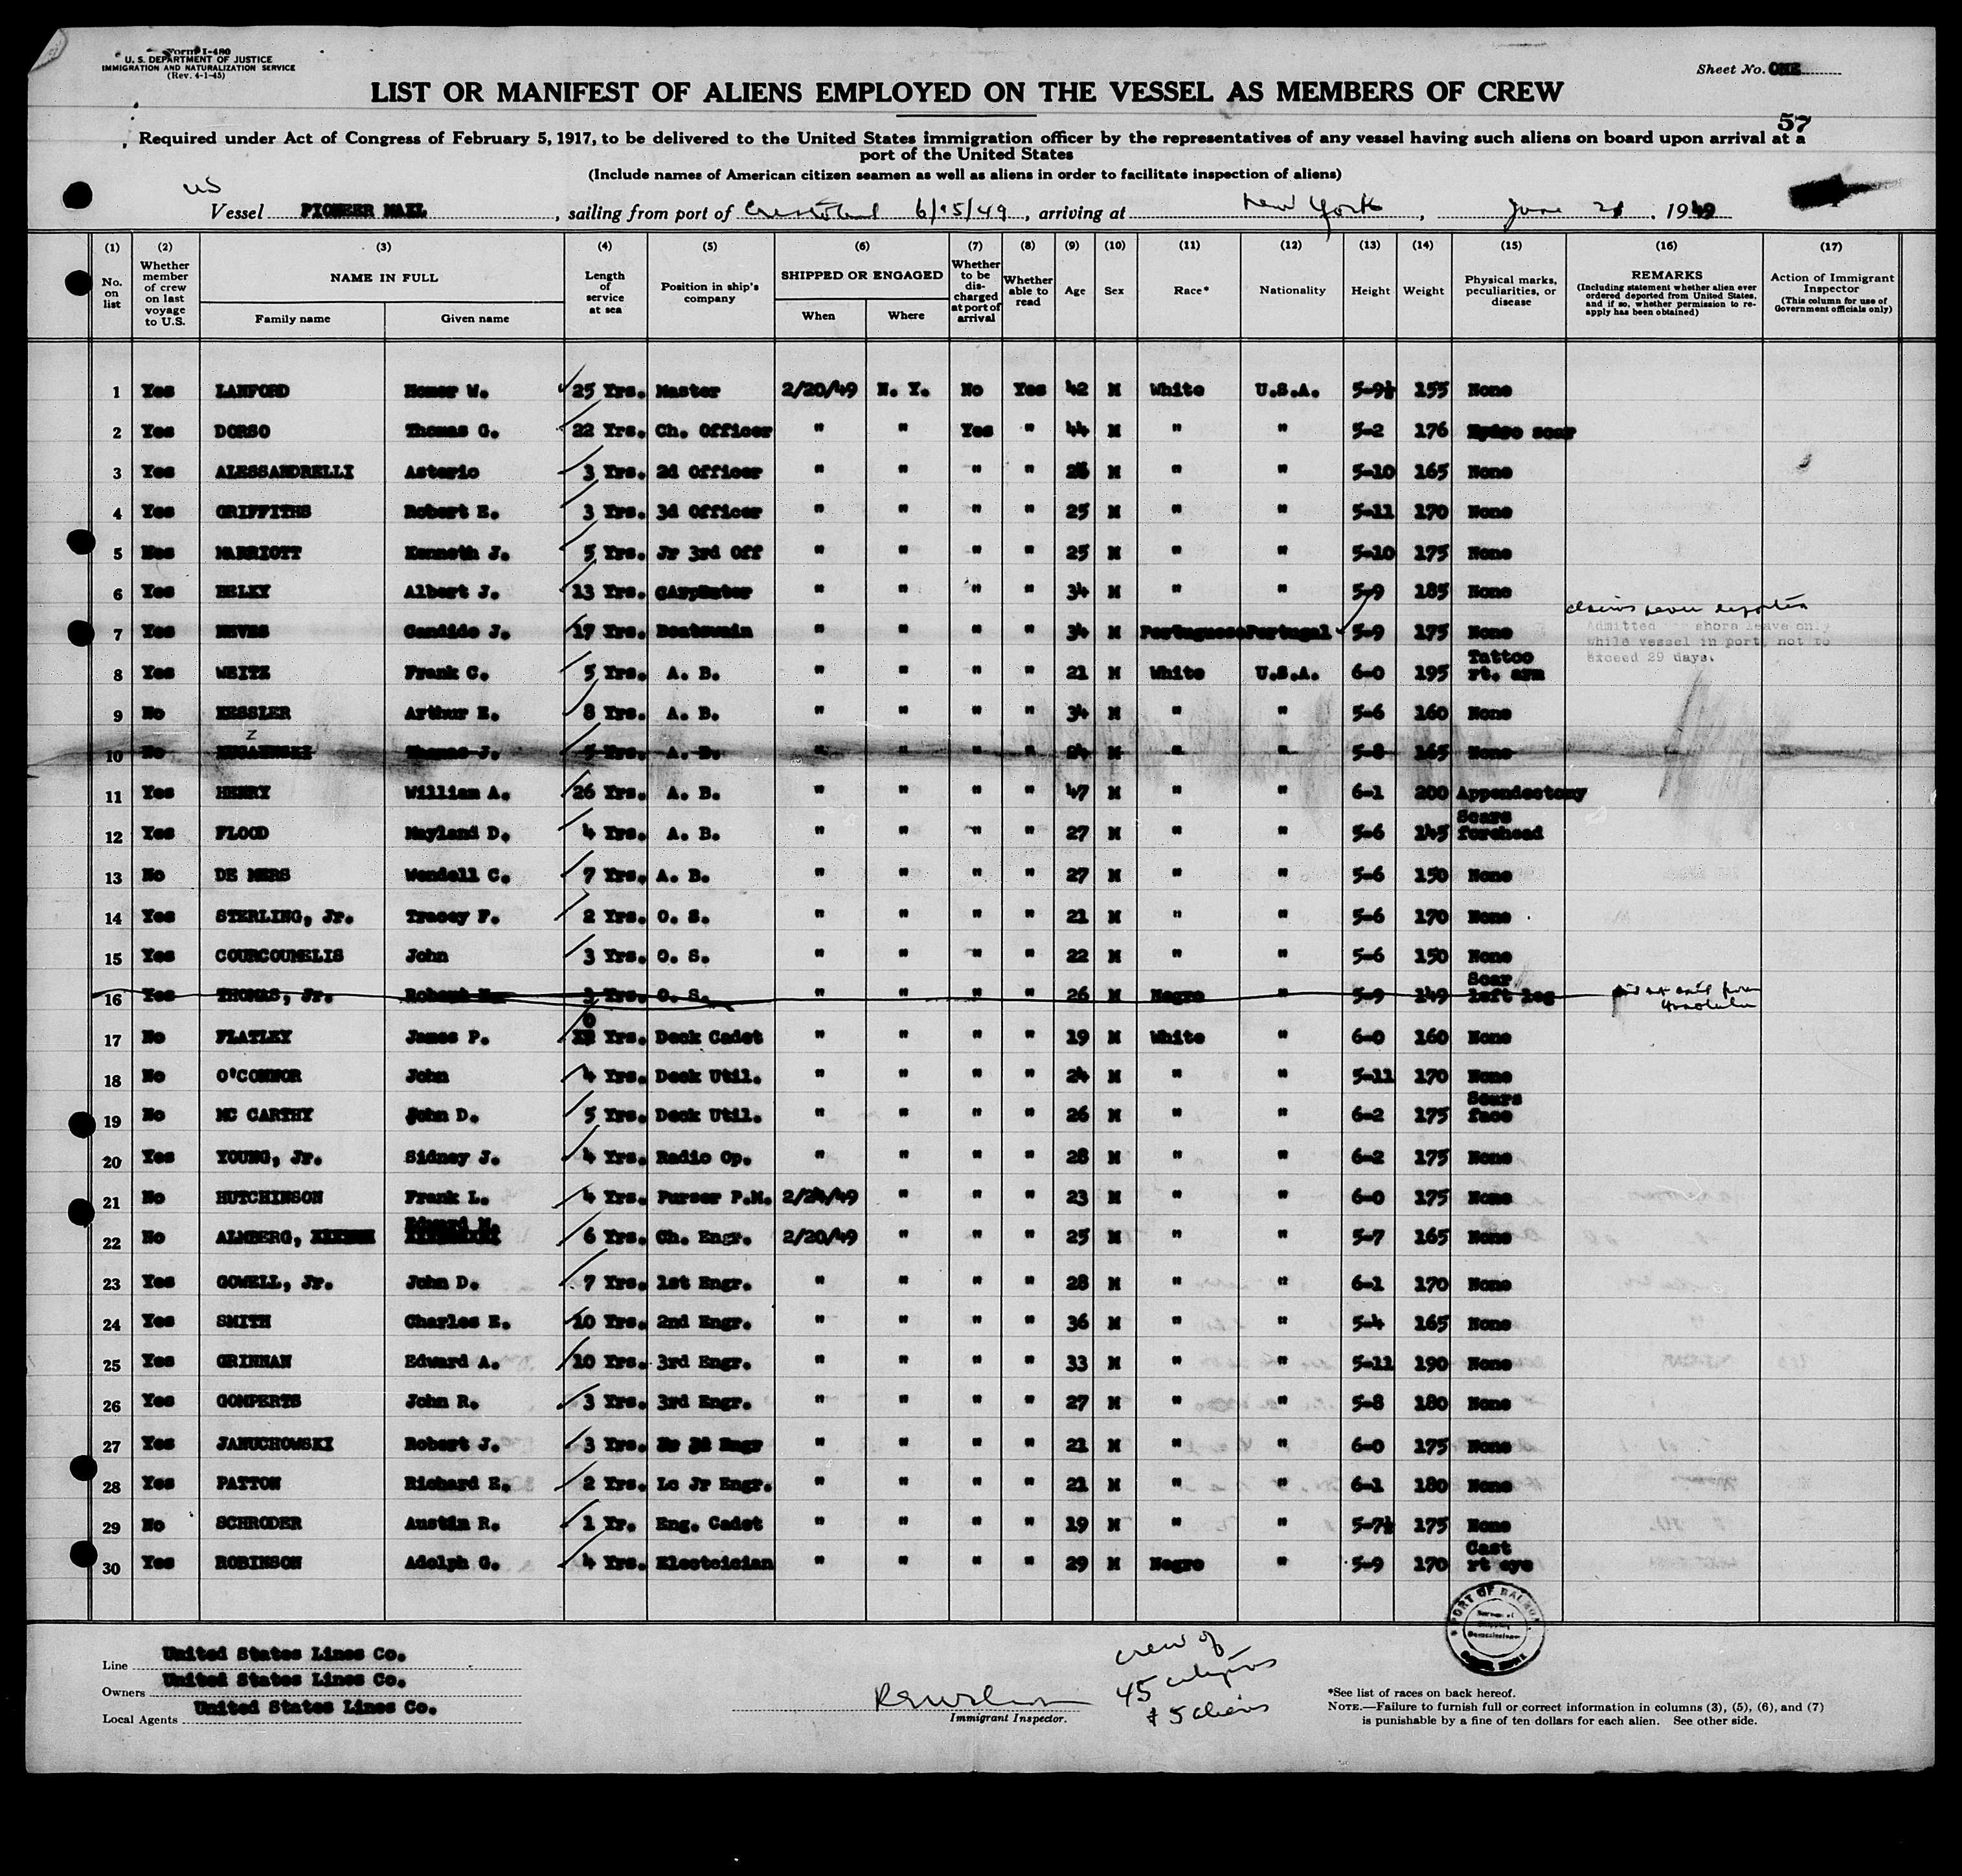 Form I-480
U. S. DEPARTMENT OF JUSTICE
IMMIGRATION AND NATURALIZATION SERVICE
(Rev. 4-1-45)
Sheet No. ONE
LIST OR MANIFEST OF ALIENS EMPLOYED ON THE VESSEL AS MEMBERS OF CREW
57
Required under Act of Congress of February 5, 1917, to be delivered to the United States immigration officer by the representatives of any vessel having such aliens on board upon arrival at a
port of the United States
(Include names of American citizen seamen as well as aliens in order to facilitate inspection of aliens)
US
Vessel PIONEER MAIL, sailing from port of Cristobal 6/15/49, arriving at New York, June 21, 1949
(1) (2) (3) (4) (5) (6) (7) (8) (9) (10) (11) (12) (13) (14) (15) (16) (17)
No. on list
Whether member of crew on last voyage to U.S.
NAME IN FULL
Family name Given name
Length of service at sea
Position in ship's company
SHIPPED OR ENGAGED
When Where
Whether to be discharged at port of arrival
Whether able to read
Age Sex Race* Nationality Height Weight
Physical marks, peculiarities, or disease
REMARKS
(Including statement whether alien ever ordered deported from United States, and if so, whether permission to re-apply has been obtained)
Action of Immigrant Inspector
(This column for use of Government officials only)
1 Yes LANFORD Homer W. 25 Yrs. Master 2/20/49 N. Y. No Yes 42 M White U.S.A. 5-9½ 155 None
2 Yes DORSO Thomas G. 22 Yrs. Ch. Officer " " Yes " 44 M " " 5-2 176 Hydro scar
3 Yes ALESSANDRELLI Asterio 3 Yrs. 2d Officer " " " " 28 M " " 5-10 165 None
4 Yes GRIFFITHS Robert E. 3 Yrs. 3d Officer " " " " 25 M " " 5-11 170 None
5 MARRIOTT Kenneth J. 5 Yrs. Jr 3rd Off " " " " 25 M " " 5-10 175 None
6 Yes BELKY Albert J. 13 Yrs. CArpenter " " " " 34 M " " 5-9 185 None
7 Yes NEVES Candido J. 17 Yrs. Boatswain " " " " 34 M Portuguese Portugal 5-9 175 None
claims never deported
Admitted shore leave only
while vessel in port, not to
exceed 29 days.
8 Yes WEITZ Frank C. 5 Yrs. A. B. " " " " 21 M White U.S.A. 6-0 195 Tattoo rt. arm
9 No KESSLER Arthur E. 8 Yrs. A. B. " " " " 34 M " " 5-6 160 None
z
10 No Thomas J. 5 Yrs. A. B. " " " " 24 M " " 5-8 165 None
11 Yes HENRY William A. 26 Yrs. A. B. " " " " 47 M " " 6-1 200 Appendectomy
12 Yes FLOOD Mayland D. 4 Yrs. A. B. " " " " 27 M " " 5-6 145 Scars forehead
13 No DE MERS Wendell C. 7 Yrs. A. B. " " " " 27 M " " 5-6 150 None
14 Yes STERLING, Jr. Tracey F. 2 Yrs. O. S. " " " " 21 M " " 5-6 170 None
15 Yes COURCOUMELIS John 3 Yrs. O. S. " " " " 22 M " " 5-6 150 None
16 Yes THOMAS, Jr. Robert 3 Yrs. O. S. " " " " 26 M Negro " 5-9 149 Scar left leg did not sail from Honolulu
17 No FLATLEY James P. Yrs. Deck Cadet " " " " 19 M White " 6-0 160 None
18 No O'CONNOR John 4 Yrs. Deck Util. " " " " 24 M " " 5-11 170 None
19 No MC CARTHY John D. 5 Yrs. Deck Util. " " " " 26 M " " 6-2 175 Scars face
20 Yes YOUNG, Jr. Sidney J. 4 Yrs. Radio Op. " " " " 28 M " " 6-2 175 None
21 No HUTCHINSON Frank L. 4 Yrs. Purser P.M. 2/24/49 " " " 23 M " " 6-0 175 None
22 No ALMBERG, Edward M. 6 Yrs. Ch. Engr. 2/20/49 " " " 25 M " " 5-7 165 None
23 Yes GOWELL, Jr. John D. 7 Yrs. 1st Engr. " " " " 28 M " " 6-1 170 None
24 Yes SMITH Charles E. 10 Yrs. 2nd Engr. " " " " 36 M " " 5-4 165 None
25 Yes GRINNAN Edward A. 10 Yrs. 3rd Engr. " " " " 33 M " " 5-11 190 None
26 Yes GOMPERTS John R. 3 Yrs. 3rd Engr. " " " " 27 M " " 5-8 180 None
27 Yes JANUCHOWSKI Robert J. 3 Yrs. Jr 3d Engr " " " " 21 M " " 6-0 175 None
28 Yes PATTON Richard E. 2 Yrs. Lc Jr Engr. " " " " 21 M " " 6-1 180 None
29 No SCHRODER Austin R. 1 Yr. Eng. Cadet " " " " 19 M " " 5-7½ 175 None
30 Yes ROBINSON Adolph G. 4 Yrs. Electcician " " " " 29 M Negro " 5-9 170 Cast rt eye
PORT OF BALBOA
Line United States Lines Co.
Owners United States Lines Co.
Local Agents United States Lines Co.
Immigrant Inspector.
crew of
45 citizens
& 5 aliens
*See list of races on back hereof.
NOTE.—Failure to furnish full or correct information in columns (3), (5), (6), and (7)
is punishable by a fine of ten dollars for each alien. See other side.